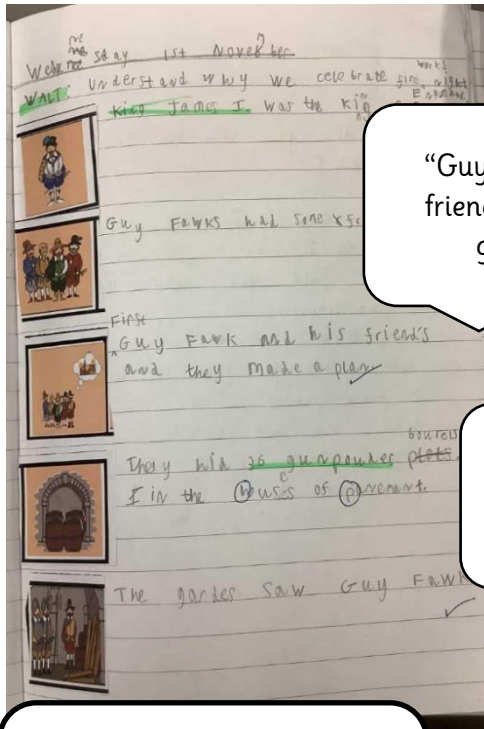 Wednesday 1st November
WALT: Understand why we celebrate fire works night
King James I was the kin
England
Guy Fawks had some
First
Guy Fawk and his friend's
and they made a plan
bourels
They hid 36 gunpouder plots.
I in the houses of
The gardes saw Guy Fawk
"Guy
frien
g